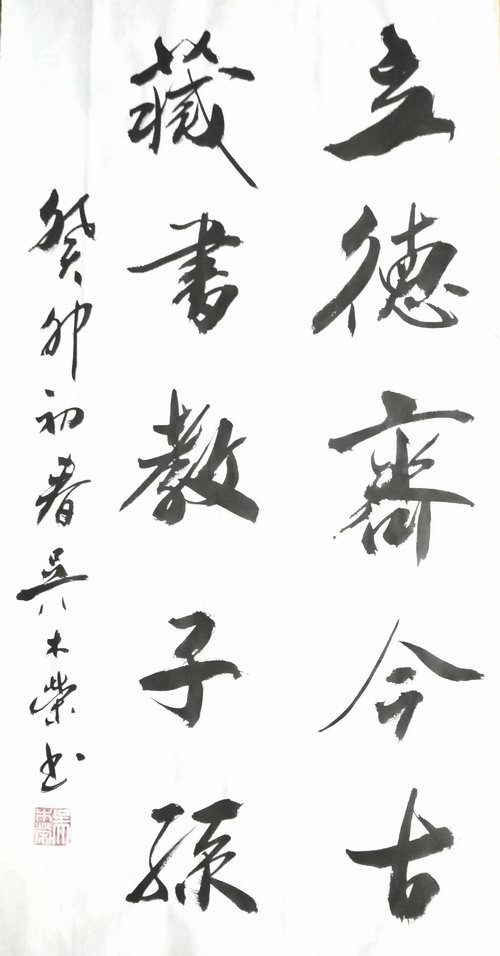 立德齋今古
藏書教子孫
癸卯初春吳木榮书